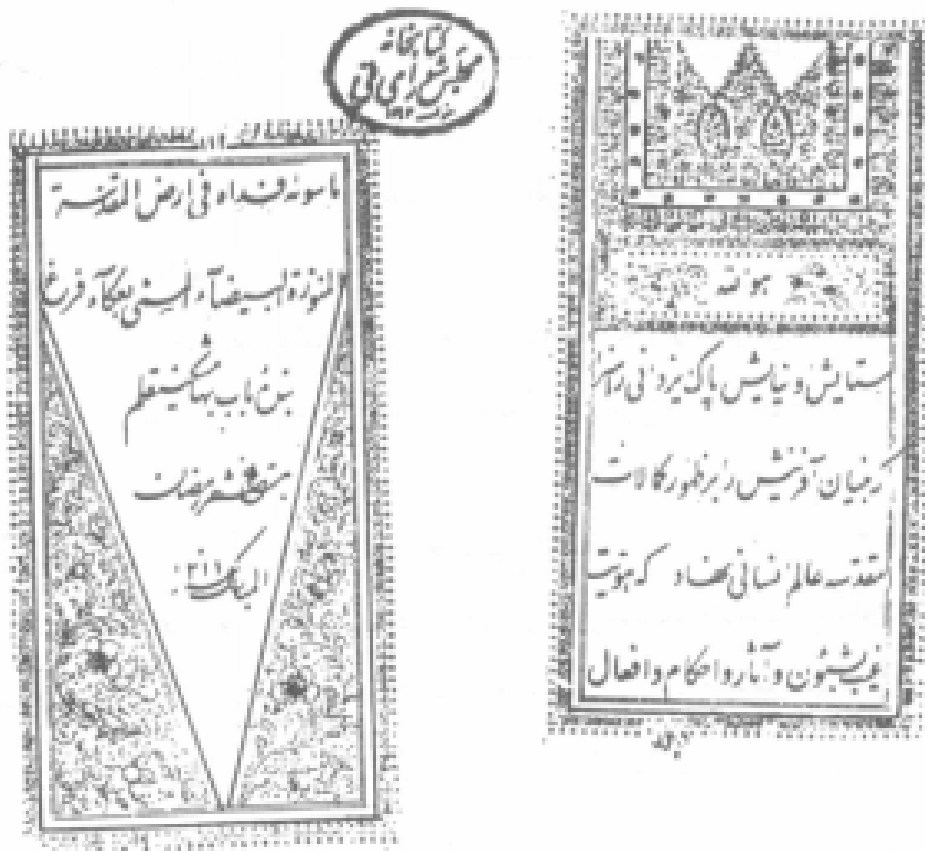 کتابخانه
مجلس شورای ملی
هو الله
ستایش و نیایش پاک یزدانی را سزا
که بنیان آفرینش را بر ظهور کمالات
مقدسه عالم انسانی نهاد که هویت
غیب بشئون و آثار و احکام و افعال
فداه فی ارض المقدسة
المنورة البیضآء المسمی بعکآء فرغ
باب بها مشکینقلم
شهر رمضان
المبارک ۱۳۱۱